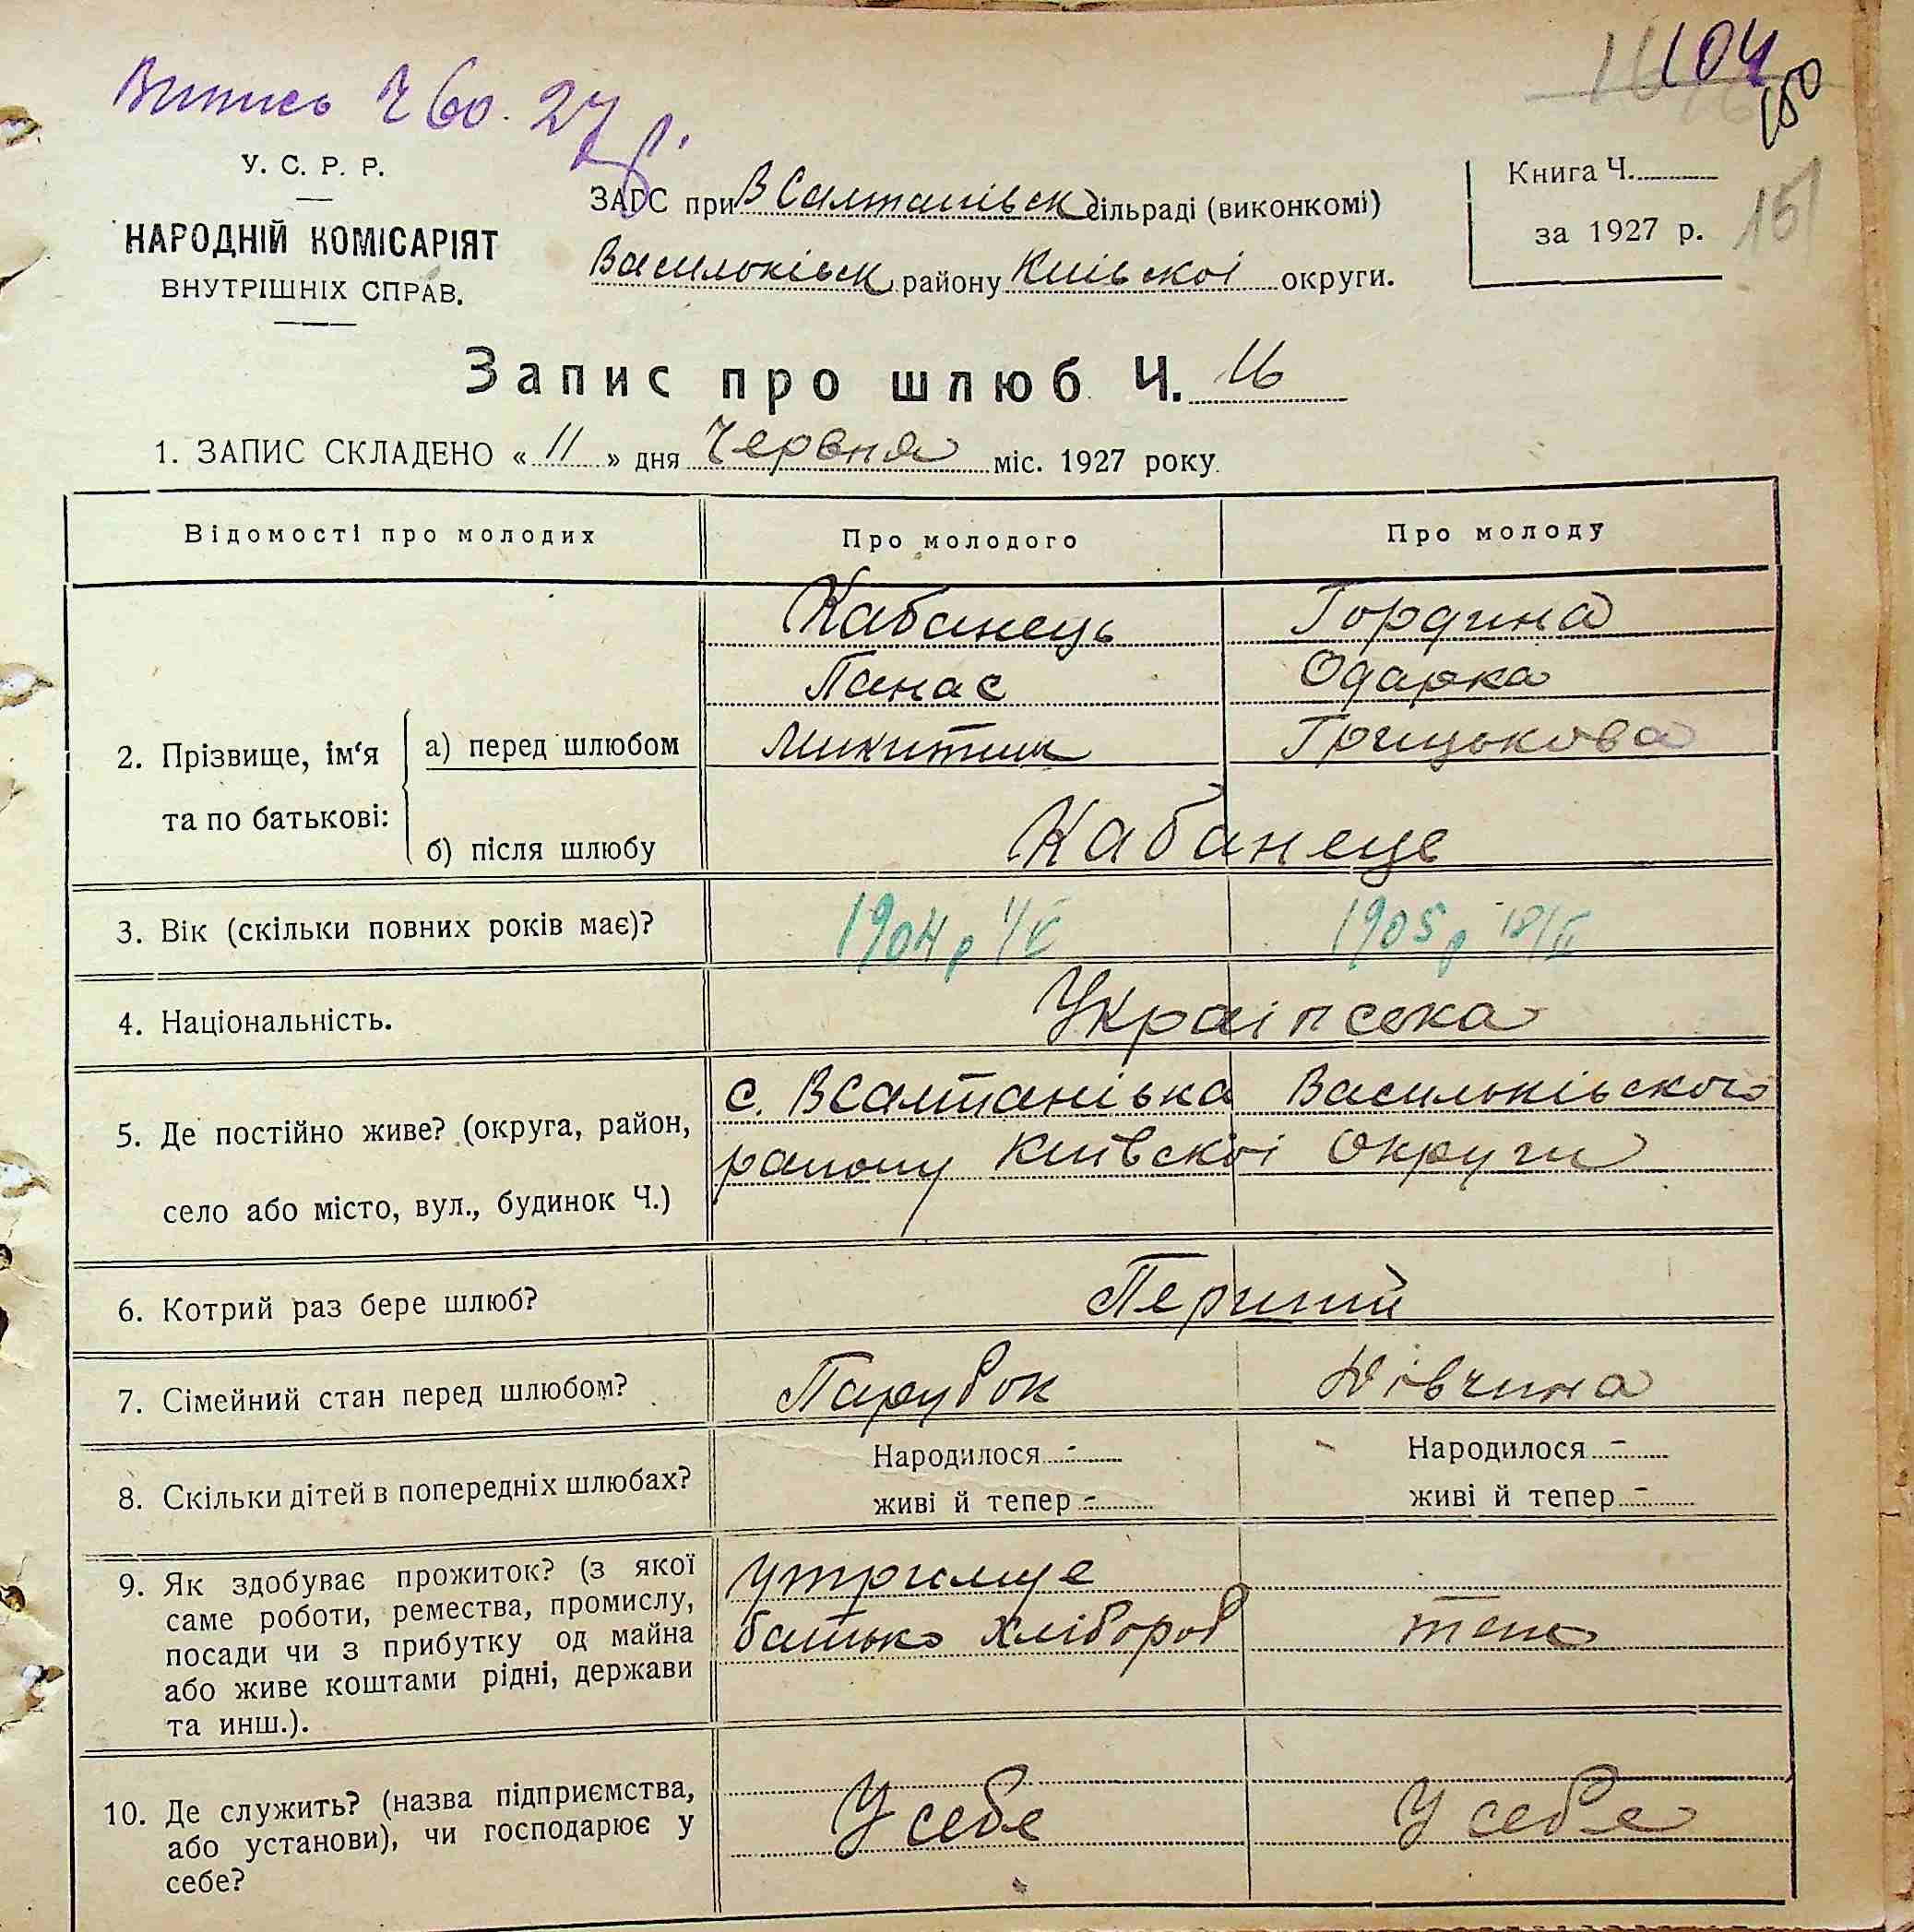 Випись Ч 60. 27 р.
104
150
151
У. С. Р. Р.
НАРОДНІЙ КОМІСАРІЯТ
ВНУТРІШНІХ СПРАВ.
ЗАГС при В Салтанівськ сільраді (виконкомі)
Васильківськ району Київскоі округи.
Книга Ч.
за 1927 р.
Запис про шлюб Ч. 16
1. ЗАПИС СКЛАДЕНО « 11 » дня Червня міс. 1927 року.
Відомості про молодих
Про молодого
Про молоду
2. Прізвище, ім‘я та по батькові:
а) перед шлюбом
Кабанець
Панас
Микитин
Гордина
Одарка
Грицькова
б) після шлюбу
Кабанець
3. Вік (скільки повних років має)?
1904 р 1/V
1905 р 18/II
4. Національність.
Украінська
5. Де постійно живе? (округа, район,
село або місто, вул., будинок Ч.)
с. ВСалтанівка Васильківського
району Київскоі Округи
6. Котрий раз бере шлюб?
Перший
7. Сімейний стан перед шлюбом?
Парубок
Дівчина
8. Скільки дітей в попередніх шлюбах?
Народилося -
живі й тепер -
Народилося -
живі й тепер -
9. Як здобуває прожиток? (з якої
саме роботи, ремества, промислу,
посади чи з прибутку од майна
або живе коштами рідні, держави
та инш.).
утримує
батько хлібороб
теж
10. Де служить? (назва підприємства,
або установи), чи господарює у
себе?
У себе
У себе